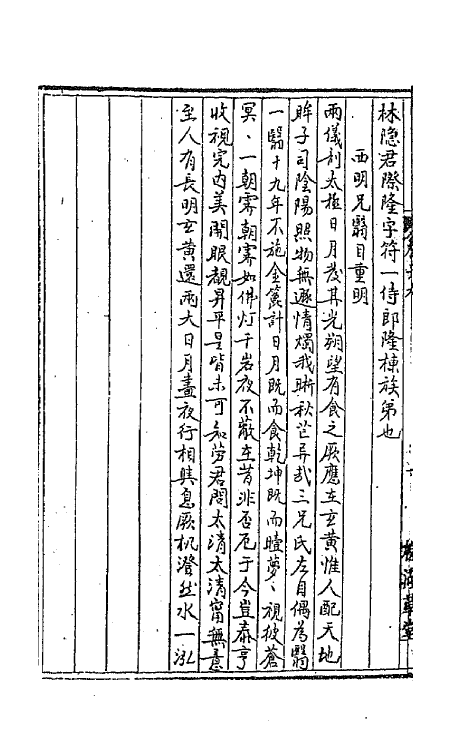 林隐君際隆字符一侍郎隆棟族弟也
西明兄翳目重明
兩儀剖太極日月發其光朔望有食之厥應在玄黄惟人配天地
眸子司陰陽照物無遯情燭我晰秋芒异哉三兄氏左目偶為翳
一翳十九年不施金篦計日月既而食乾坤既而曀夢〻視彼蒼
冥〻一朝霽朝霽如佛灯千岩夜不蔽在昔非否厄于今豈泰亨
收視完内美開眼覩昇平是皆未可知劳君問太清太清甯無意
至人有長明玄黄還兩大日月晝夜行相與息厥机澄然水一泓